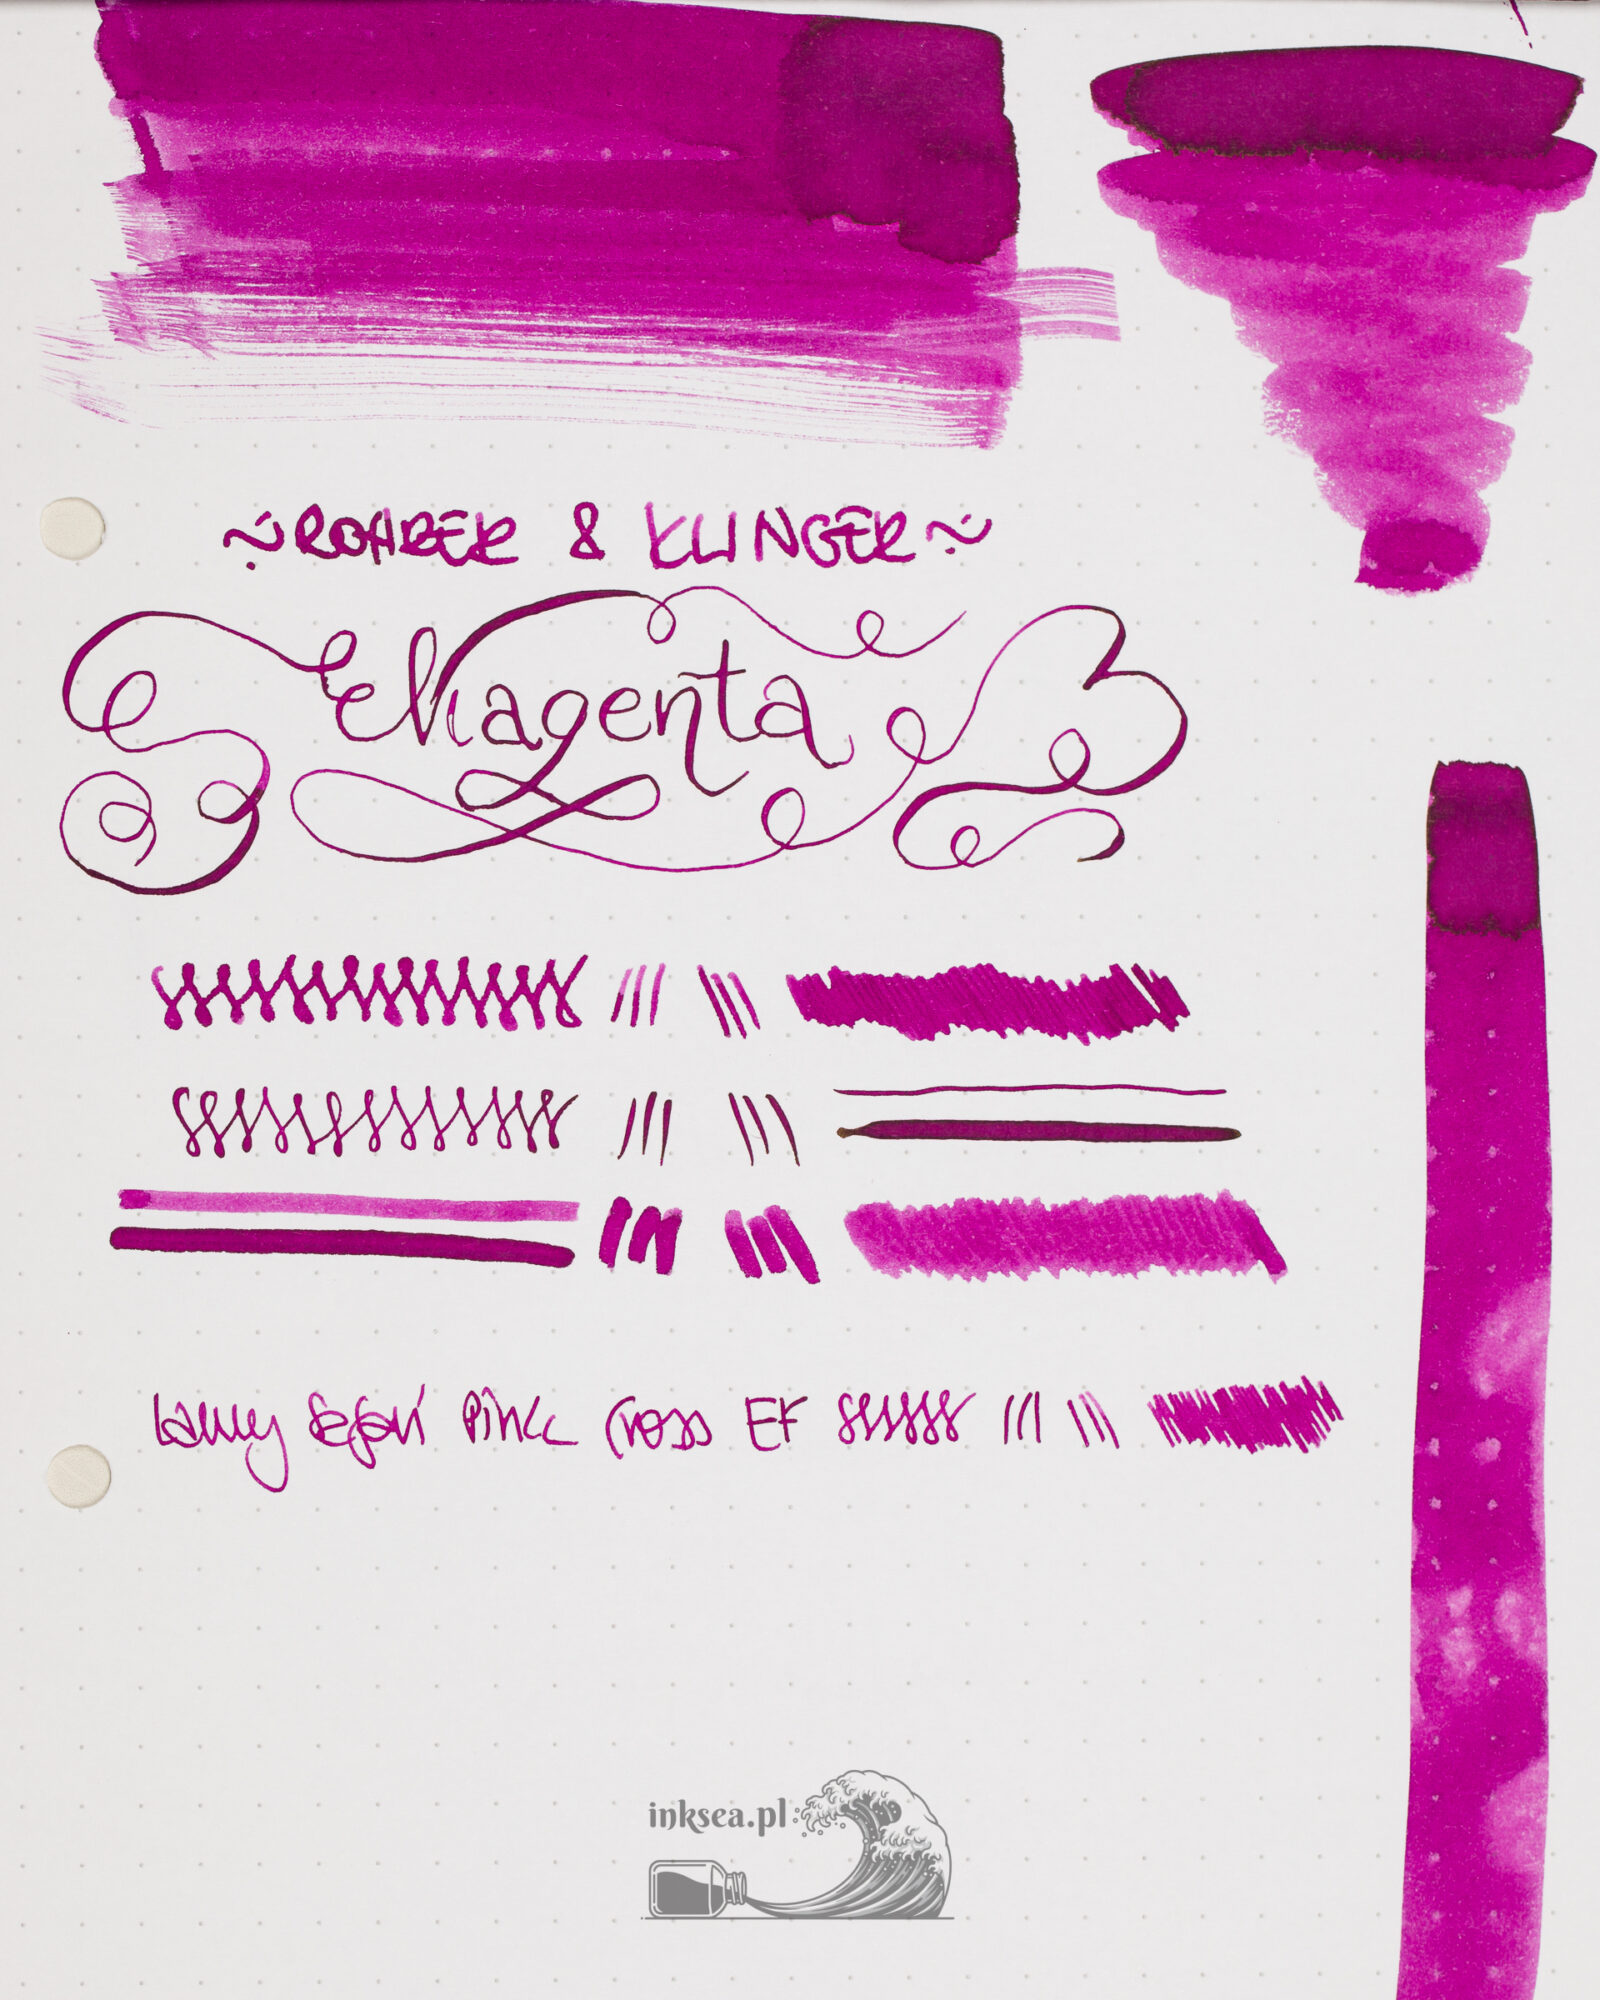 ~ROHRER & KLINGER~
Magenta
Lamy Safari Pink Cross EF
inksea.pl